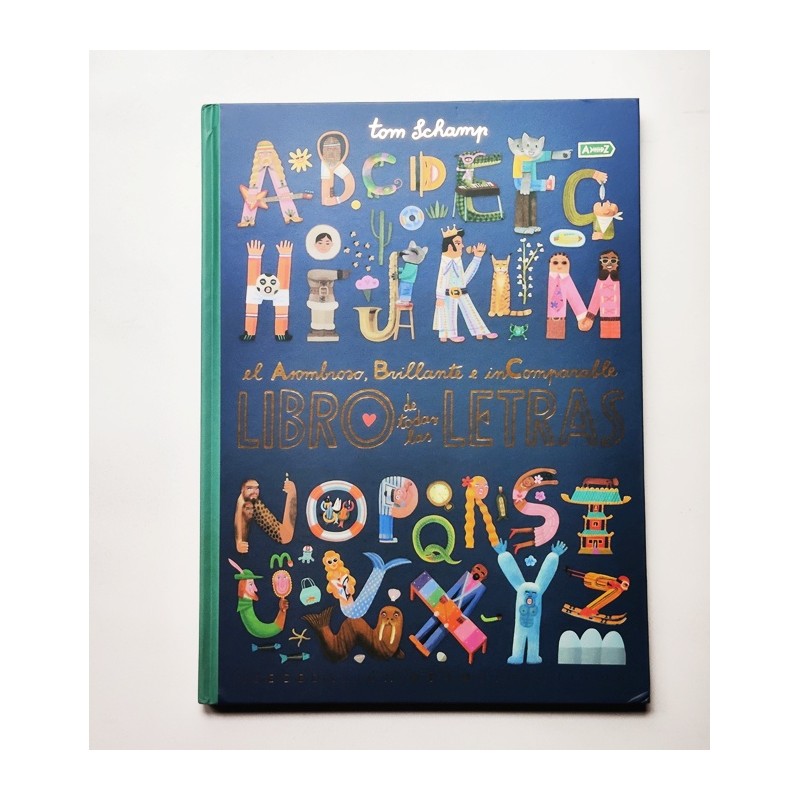 tom Schamp
ABCDEFG
A Z
HIJKLM
el Asombroso, Brillante e inComparable
LIBRO de todas las LETRAS
NOPQRST
UVWXYZ